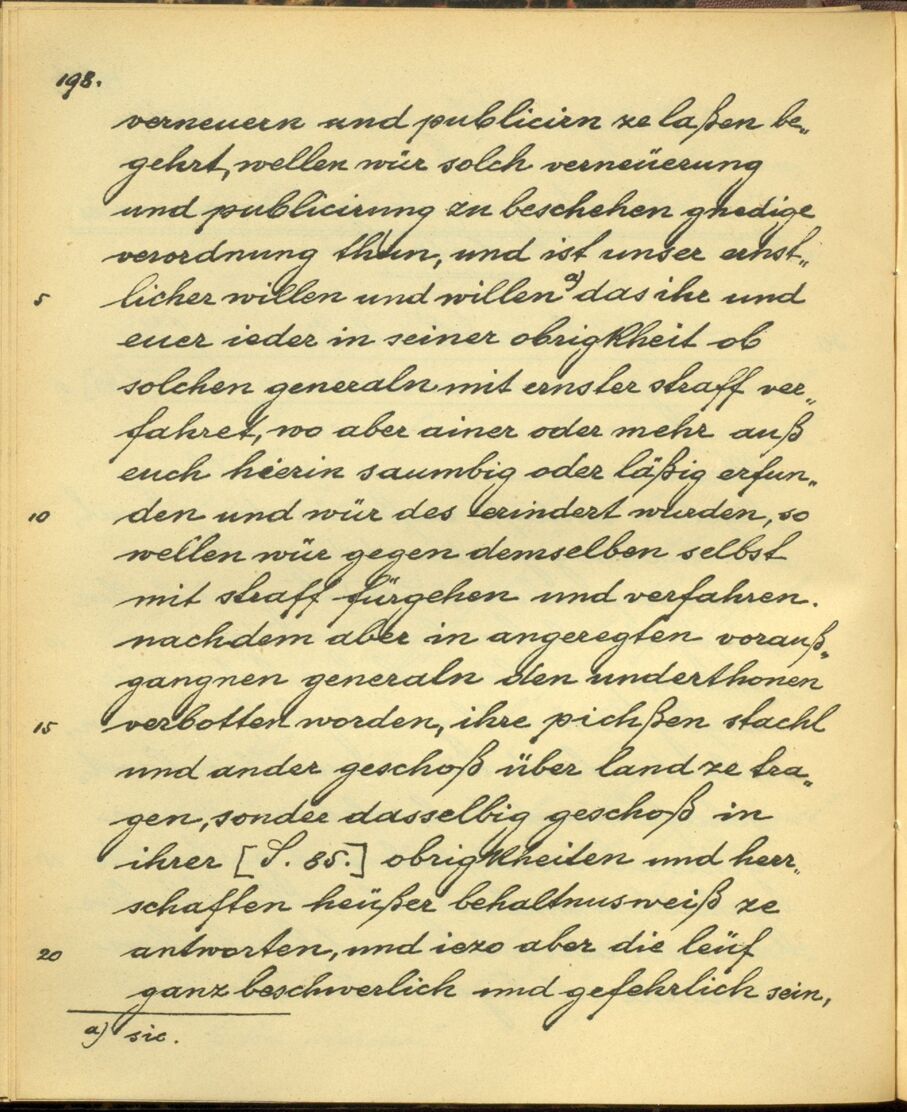 198.
verneuern und publicirn ze laßen be„
gehrt, wellen wür solch verneüerung
und publicirung zu beschehen gnedige
verordnung thun, und ist unser ernst„
5 licher willen und willen a) das ihr und
euer ieder in seiner obrigkheit ob
solchen generaln mit ernster straff ver„
fahret, wo aber ainer oder mehr auß
euch hierin saumbig oder läßig erfun„
10 den und wür des erindert wurden, so
wellen wür gegen demselben selbst
mit straff fürgehen und verfahren.
nachdem aber in angeregten vorauß„
gangnen generaln den underthonen
15 verbotten worden, ihre pichßen stachl
und ander geschoß über land ze tra„
gen, sonder dasselbig geschoß in
ihrer [S. 85.] obrigkheiten und herr„
schaften heüßer behaltnusweiß ze
20 antworten, und iezo aber die leüf
ganz beschwerlich und gefehrlich sein,
a) sic.